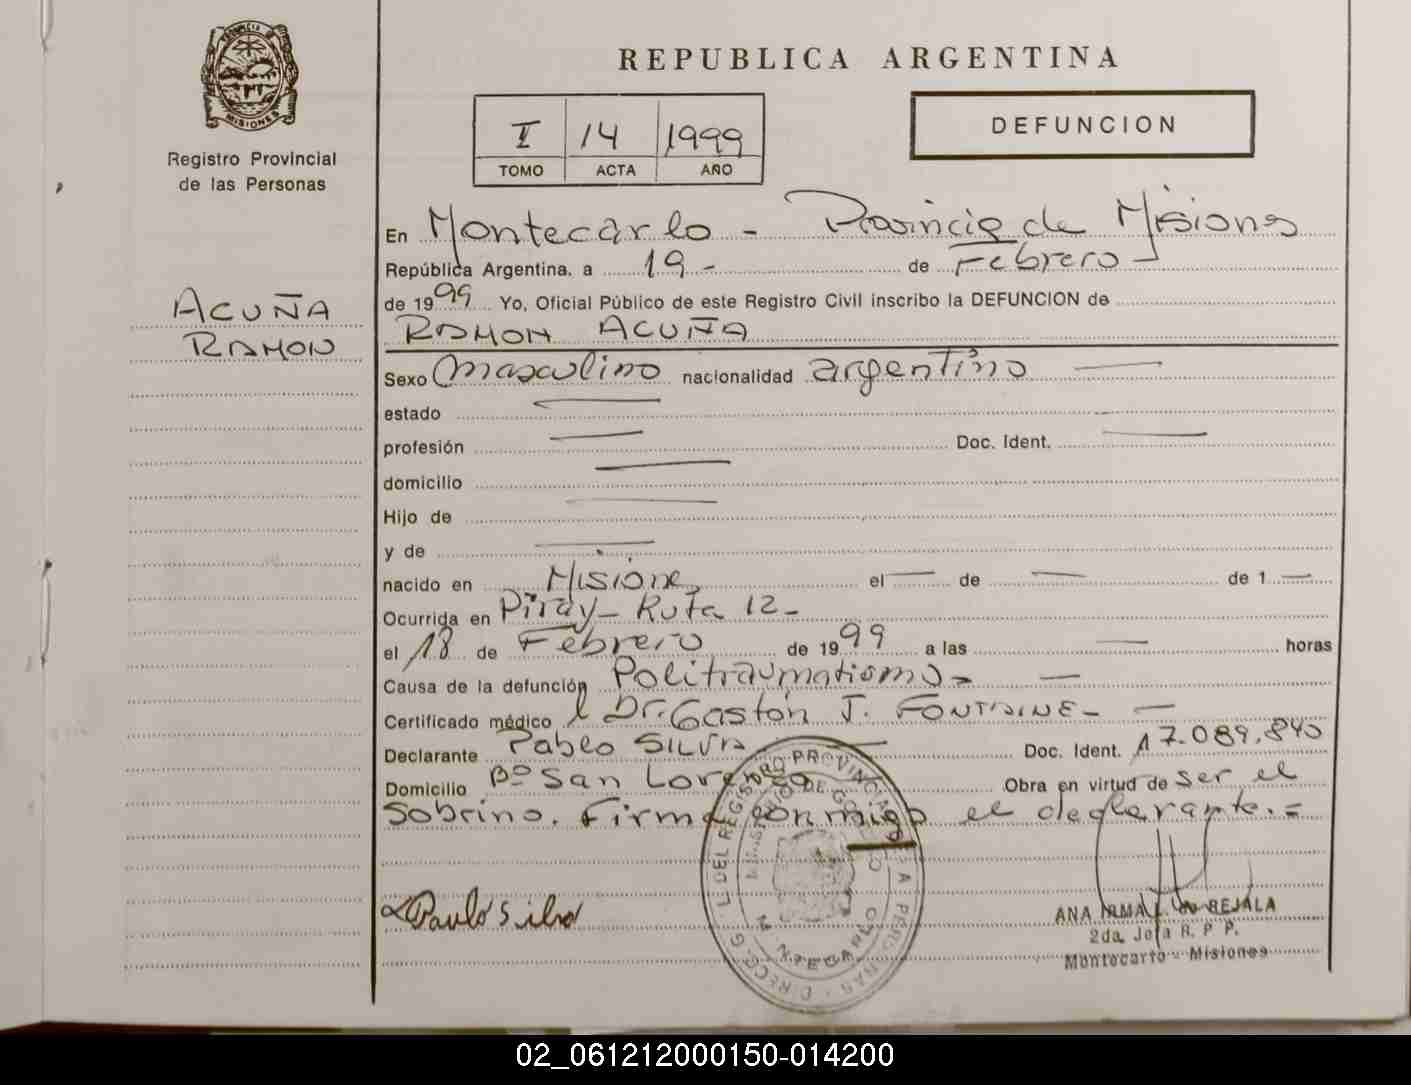 PROVINCIA DE
MISIONES
Registro Provincial
de las Personas
ACUÑA
RAMON
REPUBLICA ARGENTINA
I 14 1999
TOMO ACTA AÑO
DEFUNCION
En Montecarlo - Provincia de Misiones
República Argentina, a 19 - de Febrero
de 1999 Yo, Oficial Público de este Registro Civil inscribo la DEFUNCION de
RAMON ACUÑA
Sexo Masculino nacionalidad argentino
estado
profesión Doc. Ident.
domicilio
Hijo de
y de
nacido en Misiones el de de 1
Ocurrida en Piray - Ruta 12 -
el 18 de Febrero de 1999 a las horas
Causa de la defunción Politraumatismo -
Certificado médico Dr. Gastón J. FONTAINE -
Declarante Pablo SILVA Doc. Ident. 17.089.840
Domicilio Bº San Lorenzo Obra en virtud de ser el
sobrino. Firma conmigo el declarante. =
Paulo Silva
ANA IRMA BEJALA
2da. Jefa R. P. P.
Montecarlo - Misiones
02_061212000150-014200